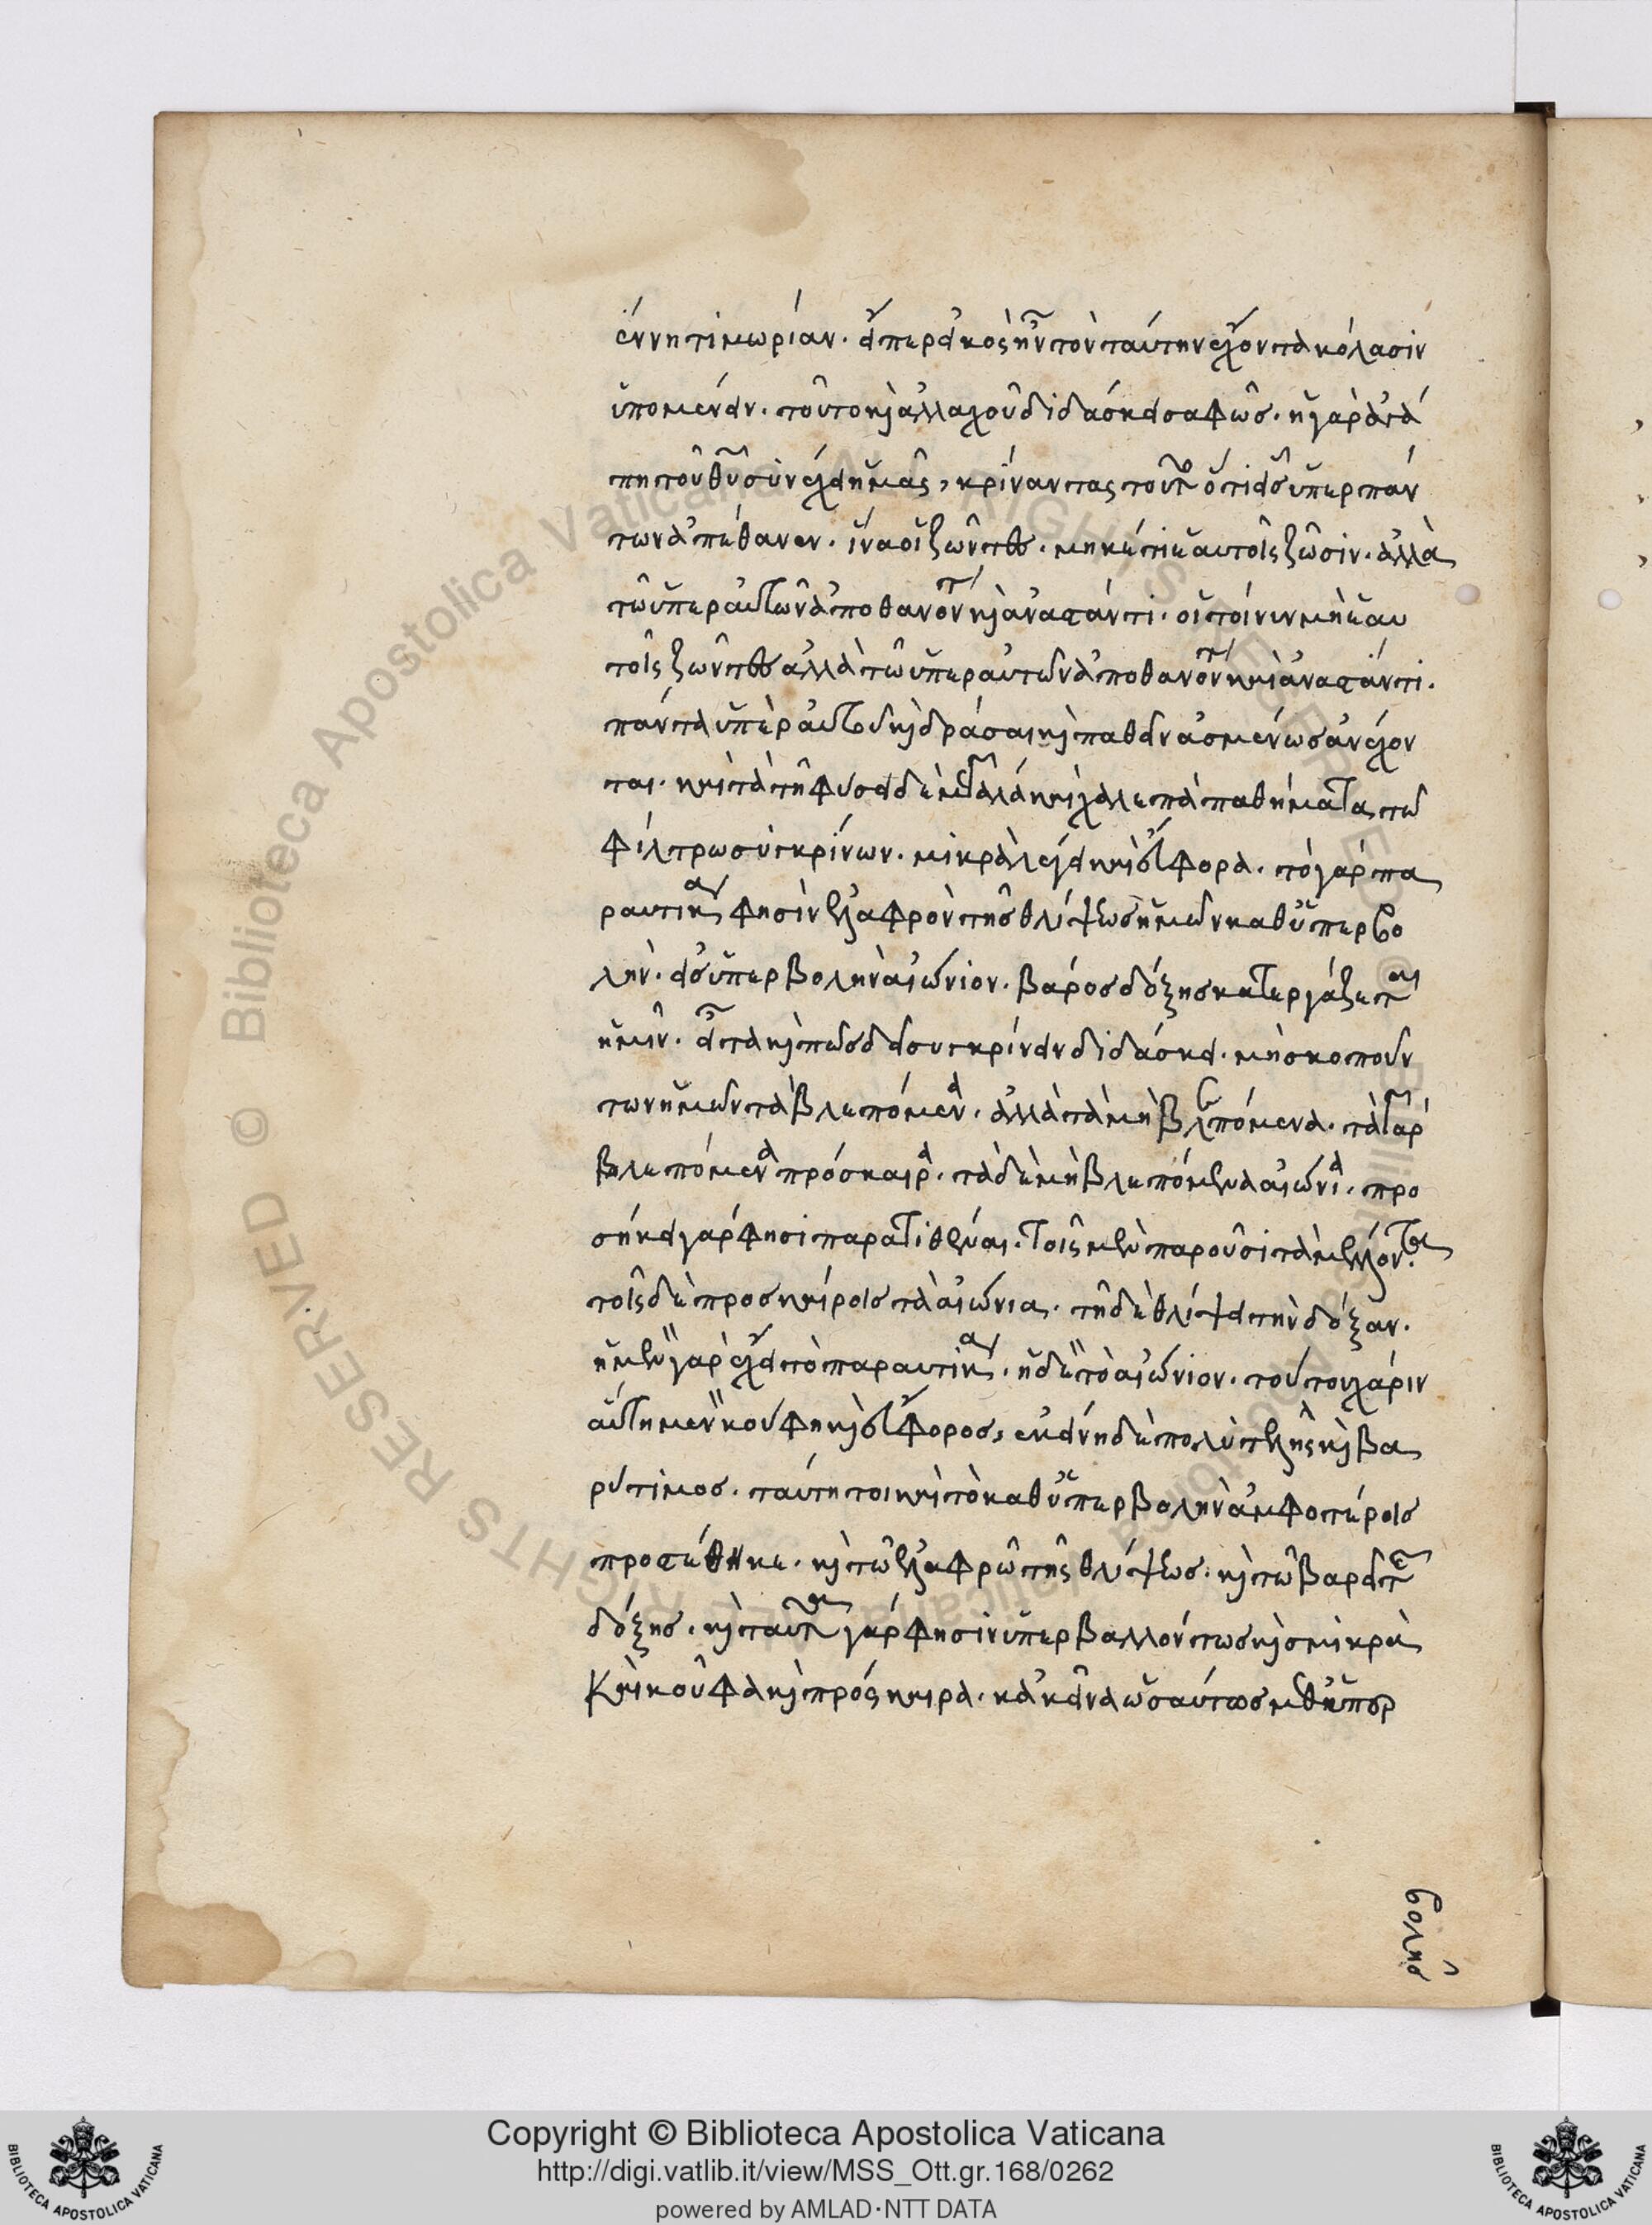 έννη τιμωρίαν. εἴπερ εἰκὸς ἦν τὸν ταύτην ἔχοντα κόλασιν
ὑπομένειν. τοῦτο καὶ ἀλλαχοῦ διδάσκει σαφῶς. ἡ γὰρ ἀγά
πη τοῦ θυ συνέχει ἡμᾶς, κρίναντας τοῦτο ὅτι εἷς ὑπερ πάν
των ἀπέθανεν. ἵνα οἱ ζῶντες. μηκέτι ἑαυτοῖς ζῶσιν. ἀλλὰ
τῶ ὑπερ αὐτῶν ἀποθανόντι καὶ ἀναστάντι. οἱ τοίνυν μὴ ἑαυ
τοῖς ζῶντες ἀλλὰ τῶ ὑπερ αὐτῶν ἀποθανόντι καὶ ἀναστάντι.
πάντα ὑπὲρ αὐτοῦ καὶ δράσαι καὶ παθεῖν ἀσμένως ἀνέχον
ται. καὶ τὰ τῆ φύσει δὲ μεγάλα καὶ χαλεπὰ παθήματα, τῶ
φίλτρω συγκρίνων. μικρὰ λέγει καὶ εὔφορα. τὸ γάρ πα
ραυτίκα, φησὶν ἐλαφρὸν τῆς θλίψεως ἡμῶν καθ' ὑπερβο
λὴν. εἰς ὑπερβολὴν αἰώνιον. βάρος δόξης κατεργάζεται
ἡμῖν. εἶτα καὶ πῶς δεῖ συγκρίνειν διδάσκει. μὴ σκοπούν
των ἡμῶν τὰ βλεπόμενα. ἀλλὰ τὰ μὴ βλεπόμενα. τὰ γὰρ
βλεπόμενα πρόσκαιρα. τὰ δὲ μὴ βλεπόμενα αἰώνια. προ
σήκει γάρ φησι παρατιθέναι. τοῖς μὲν παροῦσι τὰ μέλλοντα.
τοῖς δὲ προσκαίροις τὰ αἰώνια. τῆ δὲ θλίψει τὴν δόξαν.
ἡ μὲν γὰρ ἔχει τὸ παραυτίκα. ἡ δὲ τὸ αἰώνιον. τούτου χάριν
αὕτη μεν κούφη καὶ εὔφορος, εκείνη δὲ πολυτελὴς καὶ βα
ρύτιμος. ταύτη τοι καὶ τὸ καθ' ὑπερβολὴν ἀμφοτέροις
προστέθηκε. καὶ τῶ ἐλαφρῶ τῆς θλίψεως. καὶ τῶ βαρεῖ τῆς
δόξης. καὶ ταῦτα γάρ φησιν ὑπερβαλλόντως καὶ σμικρὰ
καὶ κοῦφα καὶ πρόσκαιρα. κἀκεῖνα ὡσαύτως μεθ' ὑπερ
βολῆσ
Copyright © Biblioteca Apostolica Vaticana
http://digi.vatlib.it/view/MSS_Ott.gr.168/0262
powered by AMLAD·NTT DATA